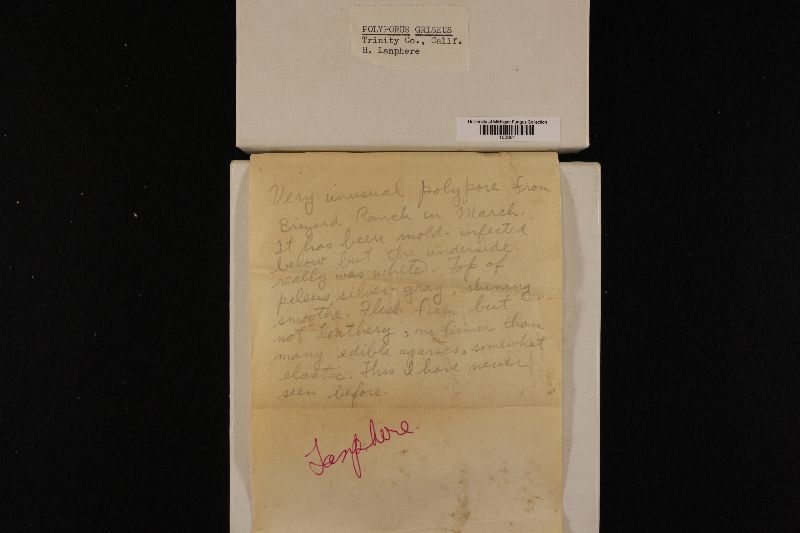 POLYPORUS GRISEUS
Trinity Co., Calif.
H. Lanphere
University of Michigan Fungus Collection
Very unusual polypore from
Ranch in March.
It has been mold-infected
below but the underside
really was white. Top of
pileus silver-gray, shining
smoothe. Flesh firm but
not leathery, no firmer than
many edible agarics, somewhat
elastic. This I have never
seen before.
Lanphere